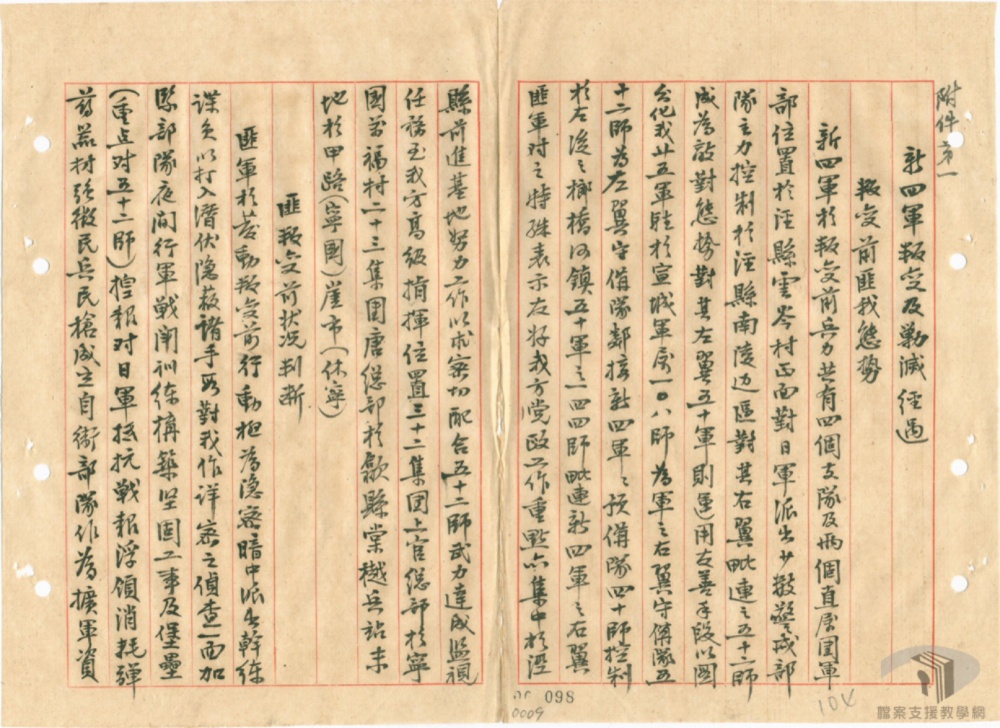 附件第一
新四軍叛变及剿滅經過
叛变前匪我態勢
新四軍於叛变前兵力共有四個支隊及兩個直屬團軍
部位置於涇縣雲岑村正面對日軍派出少数警戒部
隊主力控制於涇縣南陵边區對其右翼毗連之五十二師
成為敵對態势對其左翼五十軍則運用友善手段以圖
分化我廿五軍駐於宣城軍屬一〇八師為軍之右翼守俻隊五
十二師為左翼守俻隊鄰接新四軍之預俻隊四十師控制
於右後之榔橋河鎮五十軍之一四四師毗連新四軍之右翼
匪軍对之特殊表示友好我方党政工作重點亦集中於涇
縣前進基地努力工作以求密切配合五十二師武力達成監視
任務至我方高級指揮位置三十二集团上官總部於寧
國萬福村二十三集团唐總部於歙縣棠樾兵站末
地於甲路(寧國)崖市(休寧)
匪叛变前状况判断
匪軍於蠢動叛变前行動極為隐密暗中派出幹练
諜員以打入潛伏隐蔽諸手段對我作详密之偵查一面加
緊部隊夜间行軍战闸训练構築坚固工事及堡壘
(重点对五十二師)控報对日軍抵抗戰報浮領消耗彈
葯器材強徴民兵民槍成立自衛部隊作為擴軍資
098
0009
104
檔案支援教學網